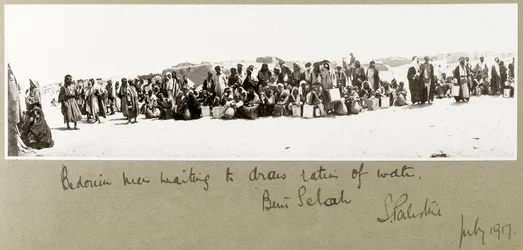 Bedouin men waiting to draw ration of water,
Beni Selah
S. Palestine
July 1917.